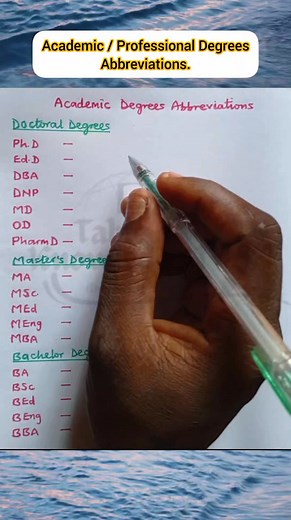 Academic / Professional Degrees
Abbreviations.
Academic Degrees Abbreviations
Doctoral Degrees
Ph.D —
Ed.D —
DBA —
DNP —
MD —
OD —
Pharm D —
Master's Degree
MA —
MSc —
MEd —
MEng —
MBA —
Bachelor Deg
BA —
BSc —
BEd —
BEng —
BBA —